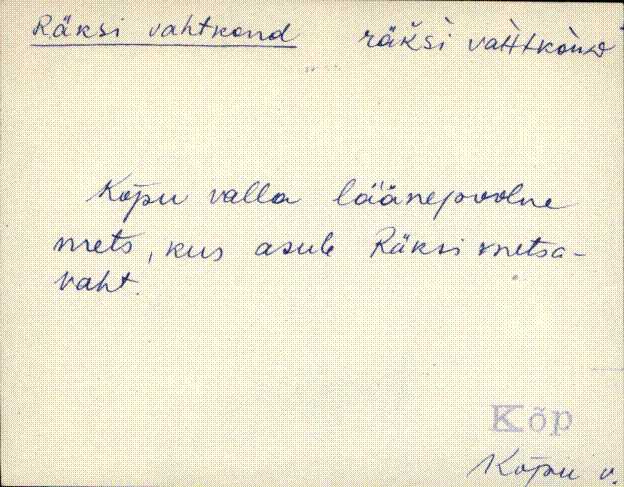 Räksi vahtkond räkśi vaht́kònᴅ
Kõpu valla läänepoolne
mets, kus asub Räksi metsa-
vaht.
Kõp
Kõpu v.